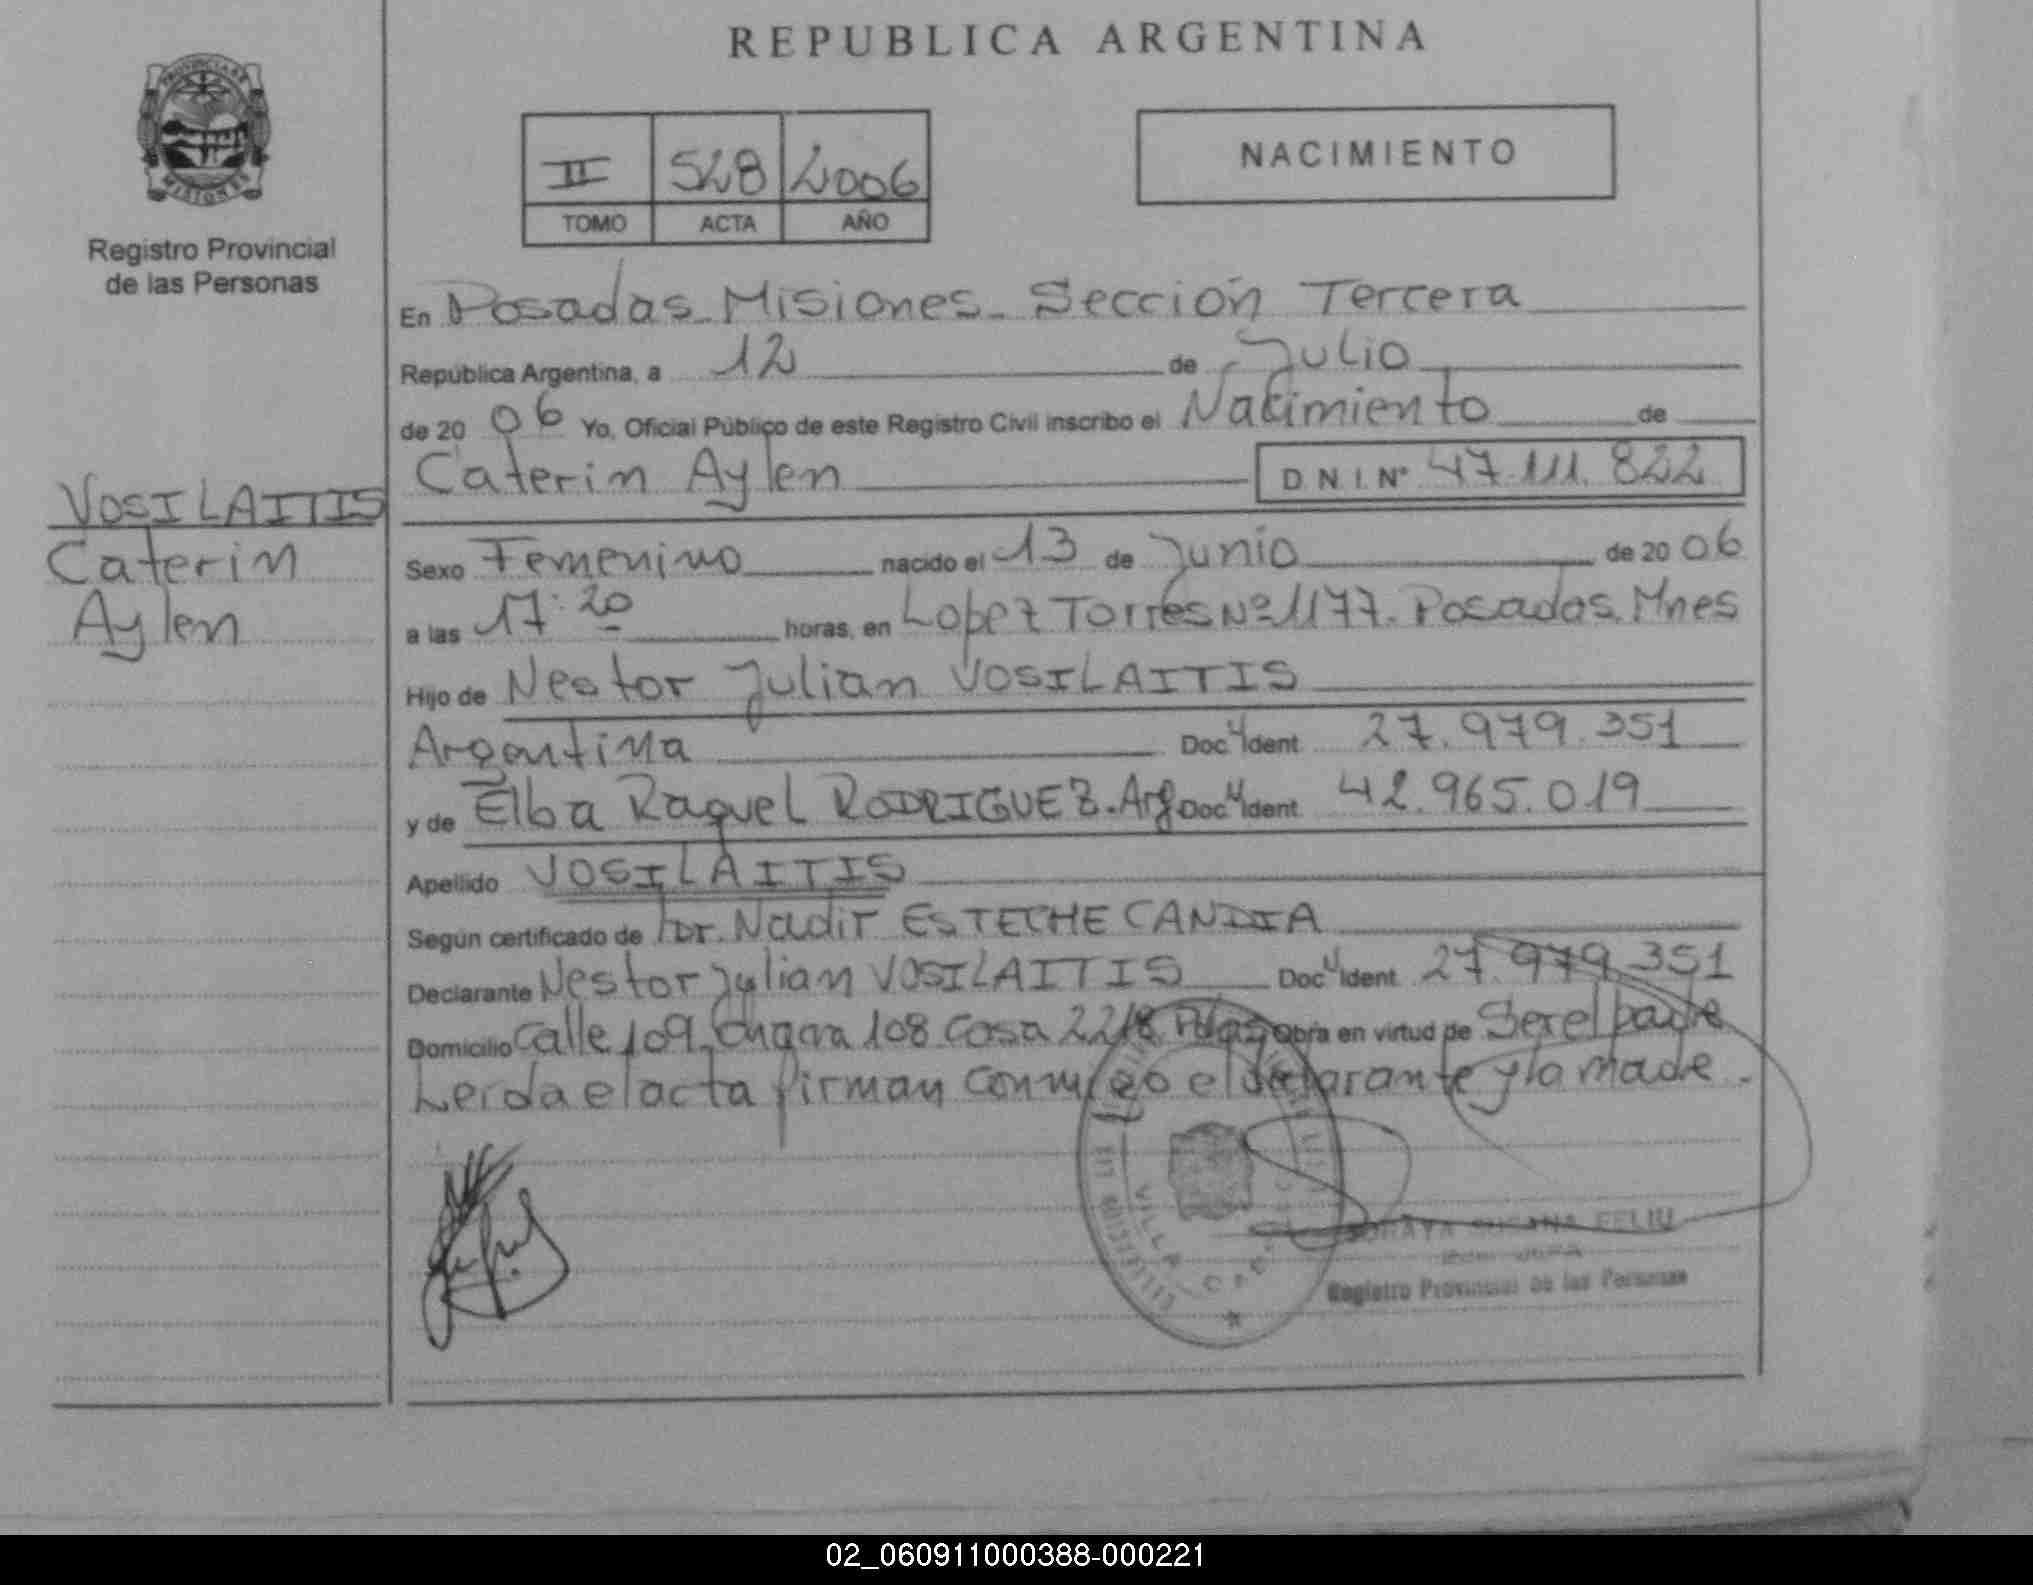 REPUBLICA ARGENTINA
PROVINCIA DE MISIONES
Registro Provincial
de las Personas
II 528 2006
TOMO ACTA AÑO
NACIMIENTO
En Posadas Misiones. Sección Tercera
República Argentina, a 12 de Julio
de 2006 Yo, Oficial Público de este Registro Civil inscribo el Nacimiento de
Caterin Aylen D.N.I. Nº 47.111.822
VOSILAITIS
Caterin
Aylen
Sexo Femenino nacido el 13 de Junio de 2006
a las 17:20 horas, en Lopez Torres Nº 1177. Posadas. Mnes
Hijo de Nestor Julian VOSILAITIS
Argentina Doc Ident 27.979.351
y de Elba Raquel RODRIGUEZ. Arg Doc Ident 42.965.019
Apellido VOSILAITIS
Según certificado de Dr. Nadir ESTECHE CANDIA
Declarante Nestor Julian VOSILAITIS Doc Ident 27.979.351
Domicilio Calle 109. Chacra 108 Casa Obra en virtud de Ser el padre
Leida el acta firman conmigo el declarante y la madre.
VILLA
SUSANA FELIU
Registro Provincial de las Personas
02_060911000388-000221